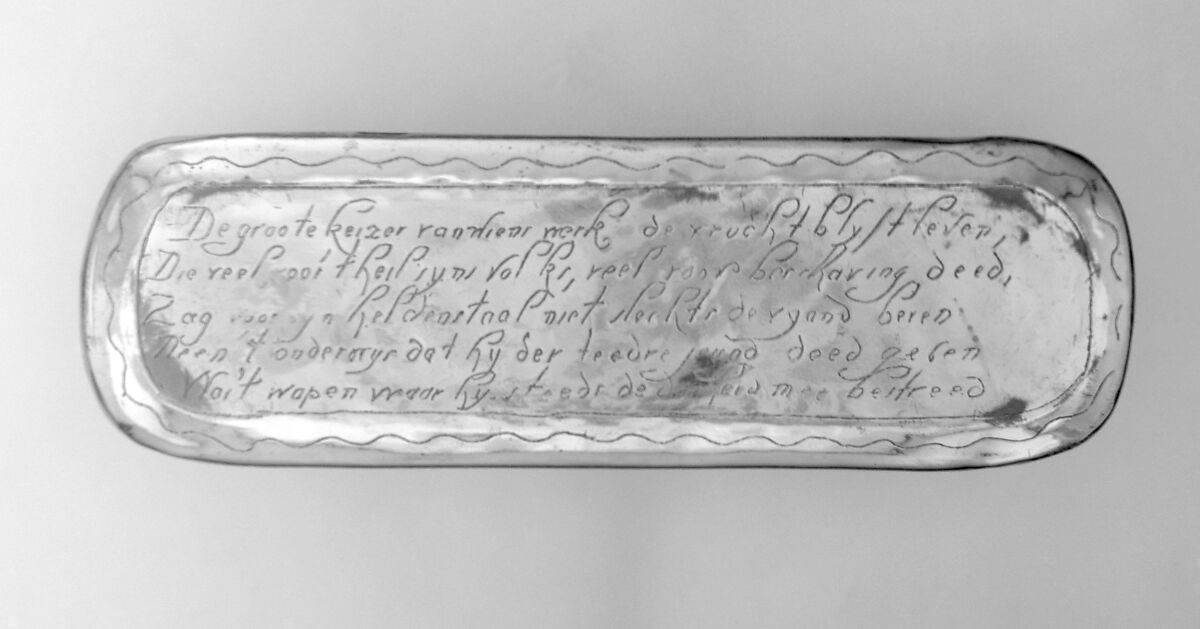 De groote keizer van wiens werk de vrucht blyft leven,
Die veel voor 't heil zyns volks, veel voor beschaving deed,
Zag voor zyn heldenstaal niet slechts de vyand beven
Neen 't onderwys dat hy der teedre jeugd deed geven
Was 't wapen waar hy steeds de mee bestreed